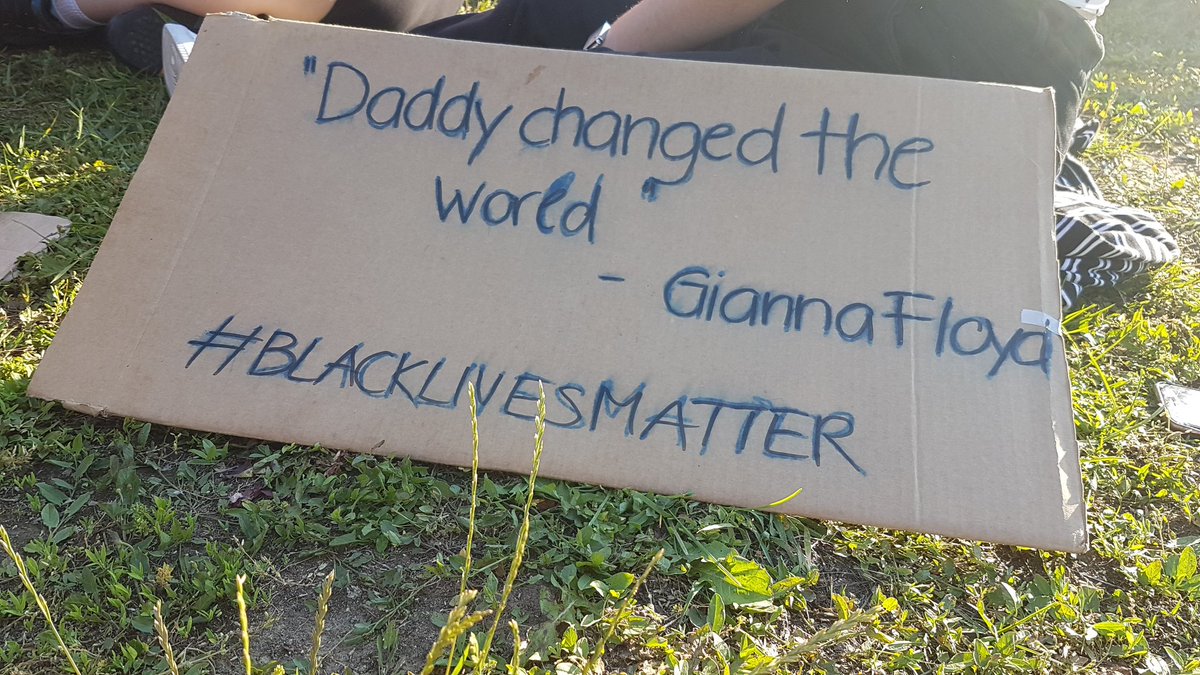 "Daddy changed the
world"
- Gianna Floyd
#BLACKLIVESMATTER